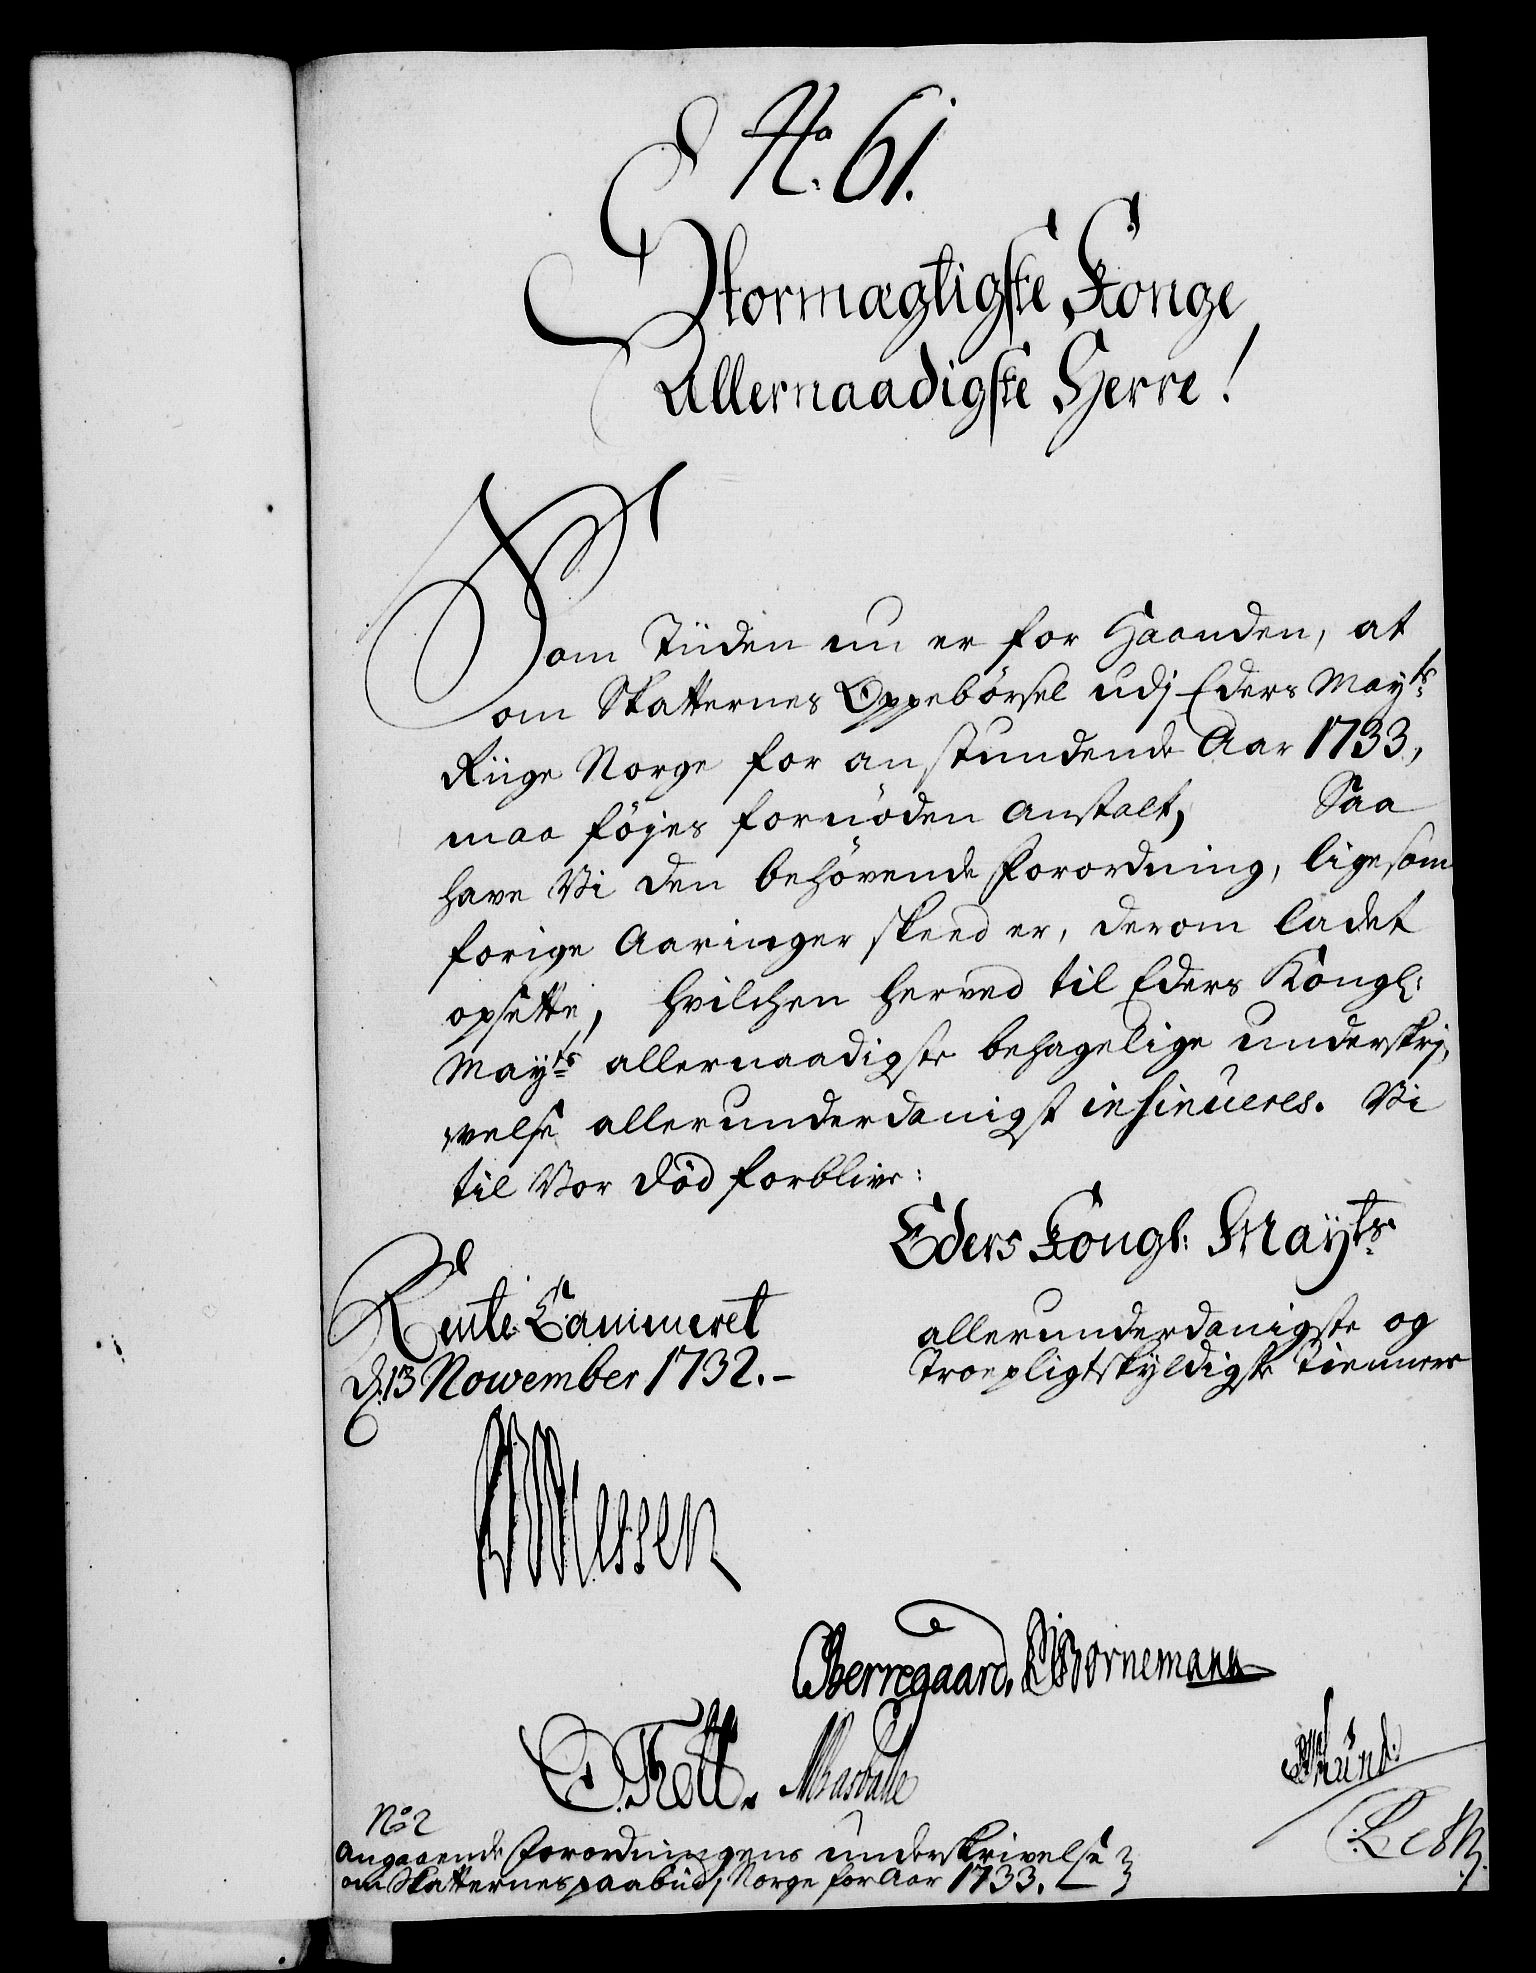 No. 61.
Stormægtigste Konge
Allernaadigste Herre!
Som Tiiden nu er for Haanden, at
om Skatternes Oppebörsel udj Eders Mayts
Riige Norge for anstundende Aar 1733,
maa föjes fornöden Anstalt, Saa
have Vi den behövende Forordning, ligesom
forige Aaringer skeed er, derom ladet
opsette, hvilchen herved til Eders Kongl:
Mayts allernaadigste behagelige underskri,
velse allerunderdanigst insinueres. Vi
til Vor Död forblive:
Eders Kongl: Mayts
Rente Cammeret
d. 13 Nowember 1732.-
allerunderdanigste og
Troepligtskyldigste Tiennere
Berregaard. Bornemann
Trott.
No 2
Angaaende Forordningens underskrivelse
om Skatternes paabud i Norge for Aar 1733.